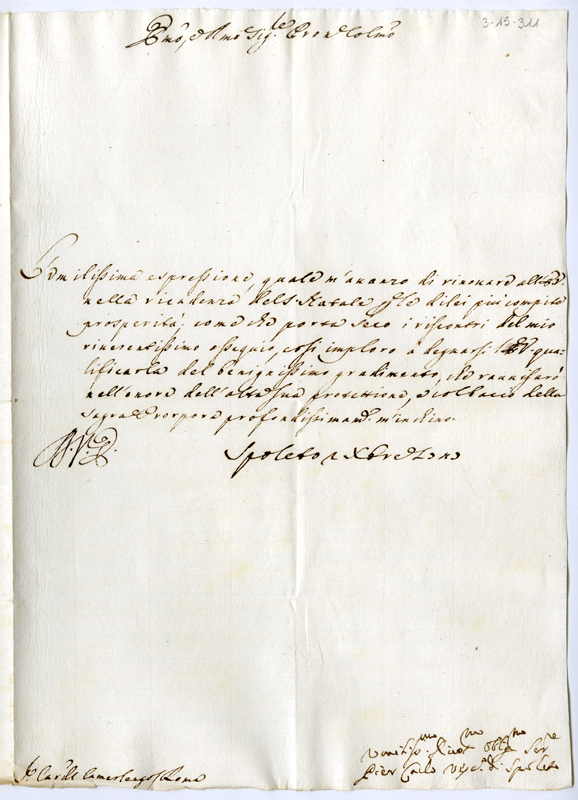 3-15-311
Emo, e Rmo Sig.re Prone Colmo
Umilissima espressione, quale m'avanzo di rinovare all'
nella ricadenza del S. Natale p le di lei più compite
prosperità; come che porta seco i riscontri del mio
riverentissimo ossequio, così imploro a degnarsi l'EV qua-
lificarla del benignissimo gradimento, che ravviserò
nell'onore dell'alta sua protettione, e col bacio della
Sagra porpora profondissimam.e m'inchino.
Spoleto Xbre
Sr Card.le Camerlengo Roma
Umiliss.mo Divot.mo Obb.mo Ser.re
Pier Carlo Vesc.o di Spoleto